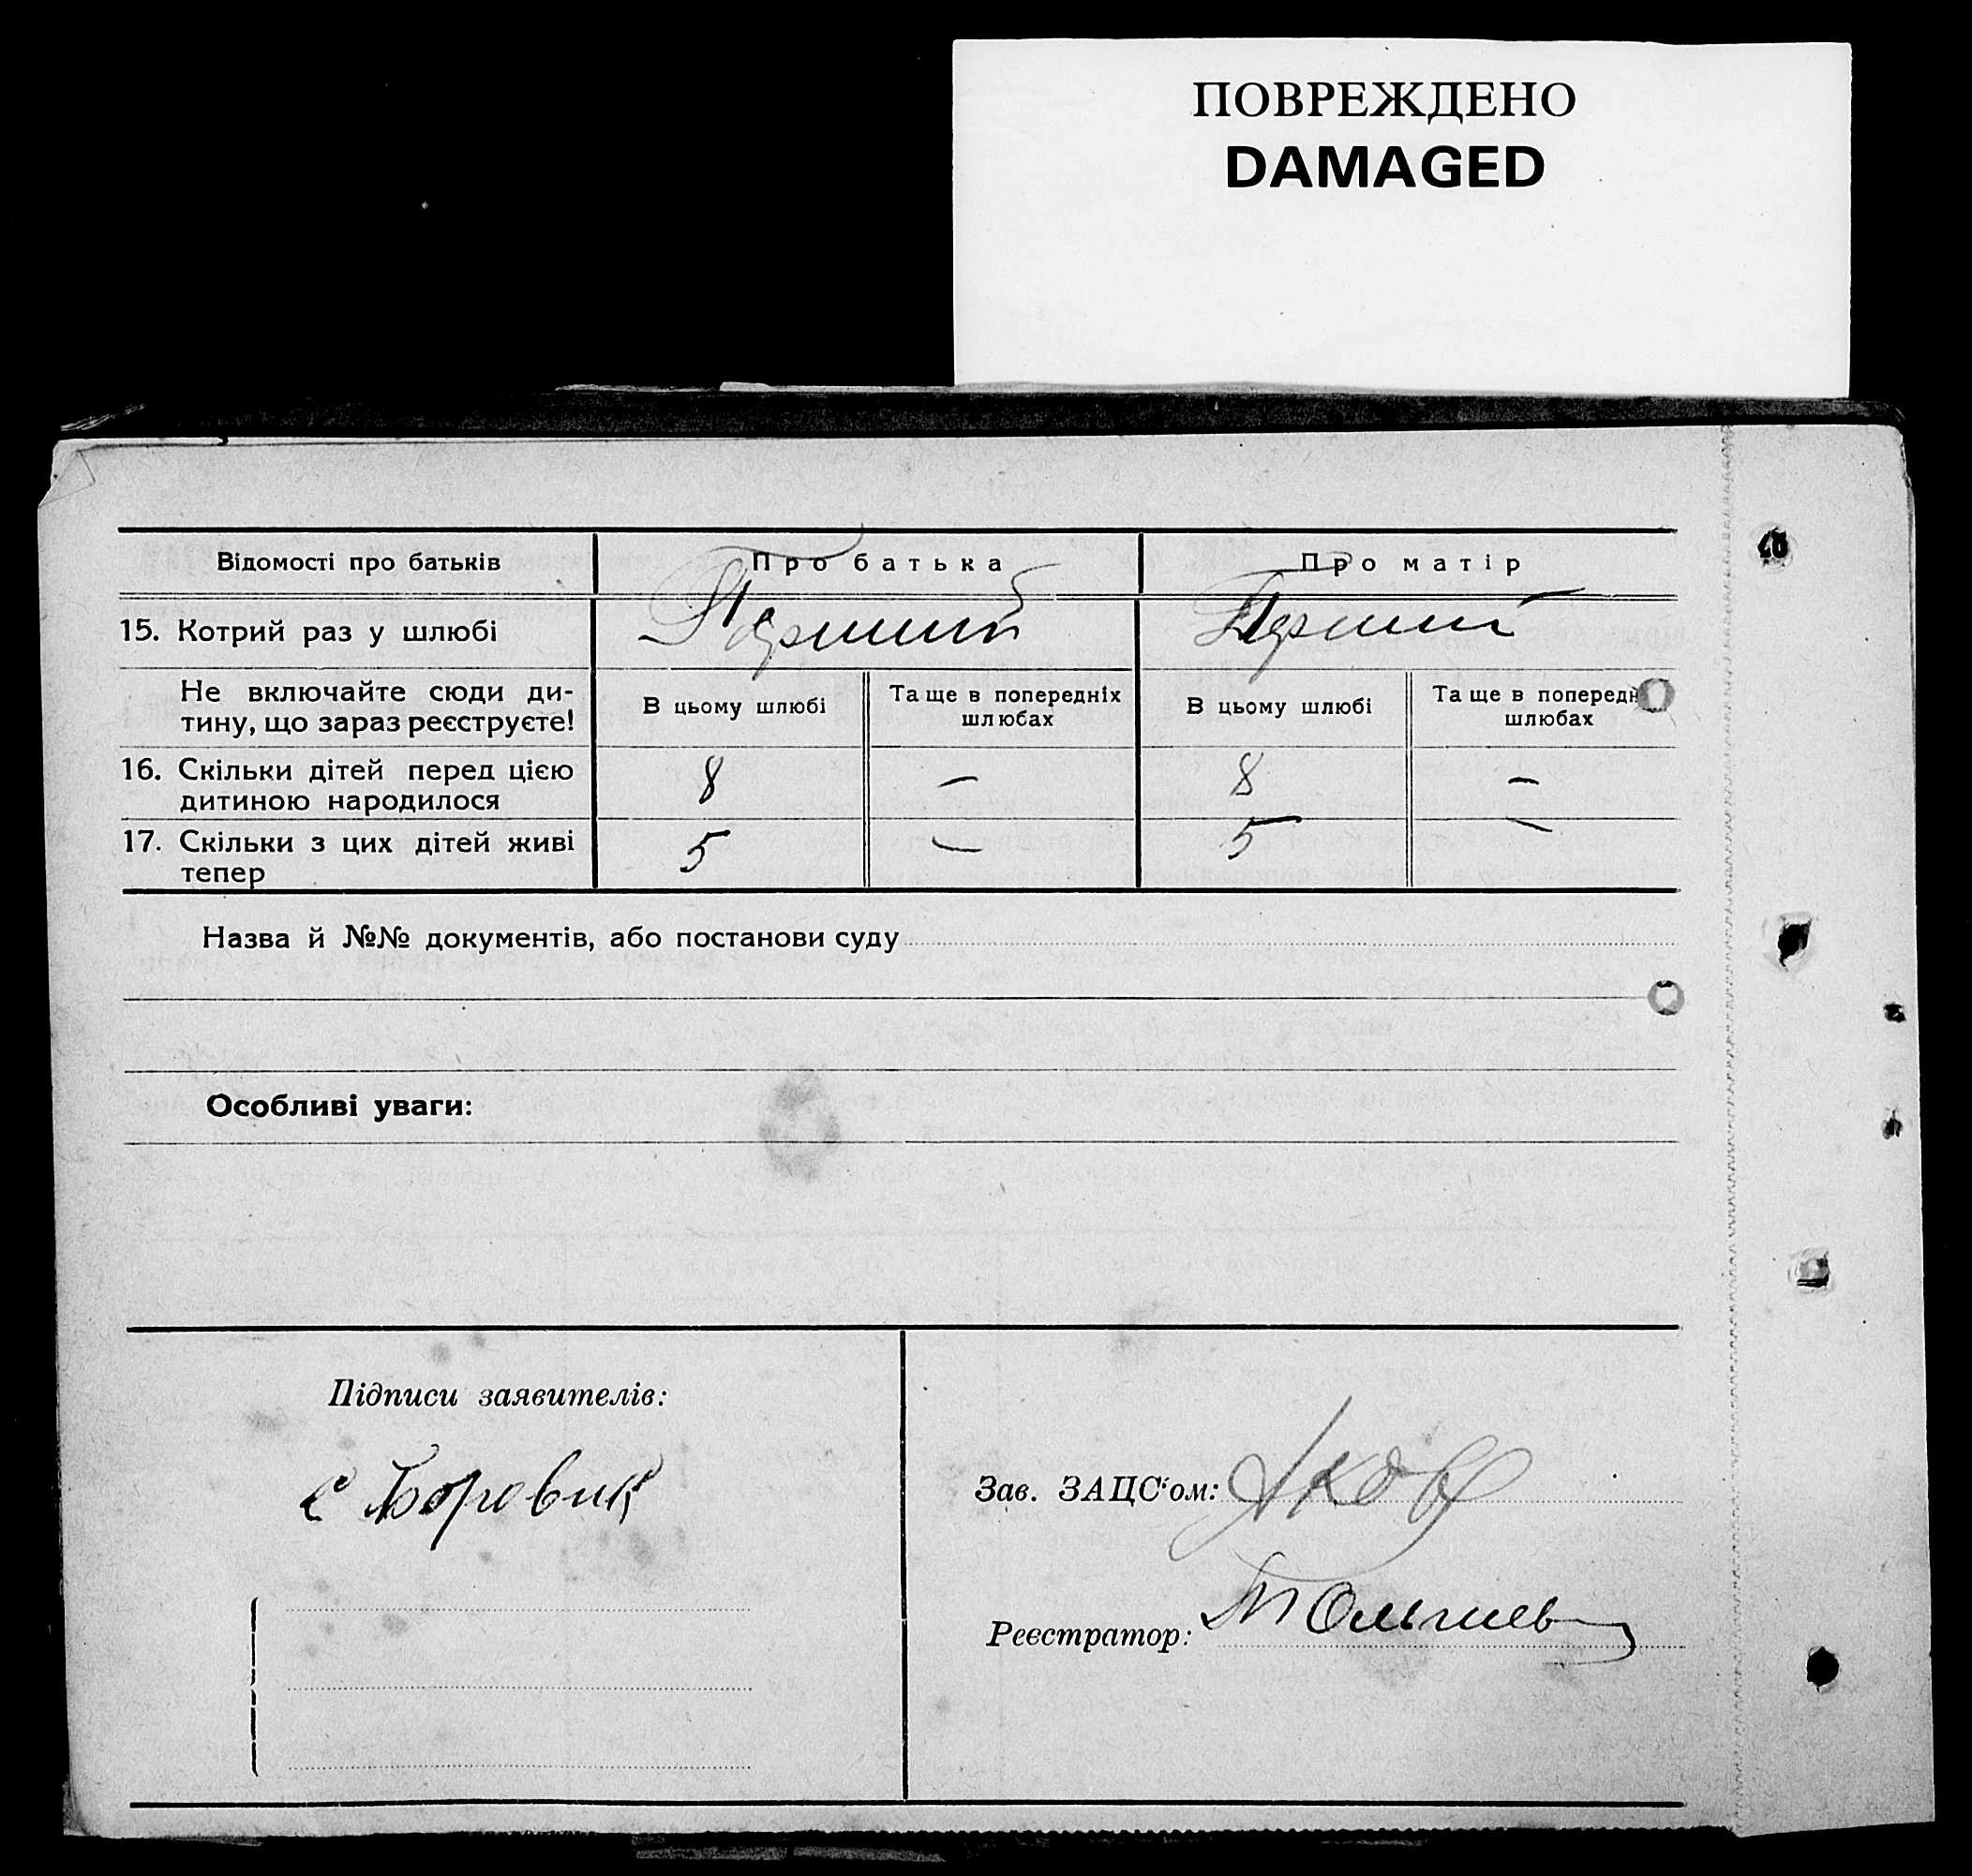 ПОВРЕЖДЕНО
DAMAGED
Відомості про батьків
Про батька
Про матір
15. Котрий раз у шлюбі
Перший
Перший
Не включайте сюди ди-
тину, що зараз реєструєте!
В цьому шлюбі
Та ще в попередніх
шлюбах
В цьому шлюбі
Та ще в попередн
шлюбах
16. Скільки дітей перед цією
дитиною народилося
8
—
8
—
17. Скільки з цих дітей живі
тепер
5
—
5
—
Назва й №№ документів, або постанови суду
Особливі уваги:
Підписи заявителів:
С Боровик
Зав. ЗАЦС'ом:
Реєстратор: